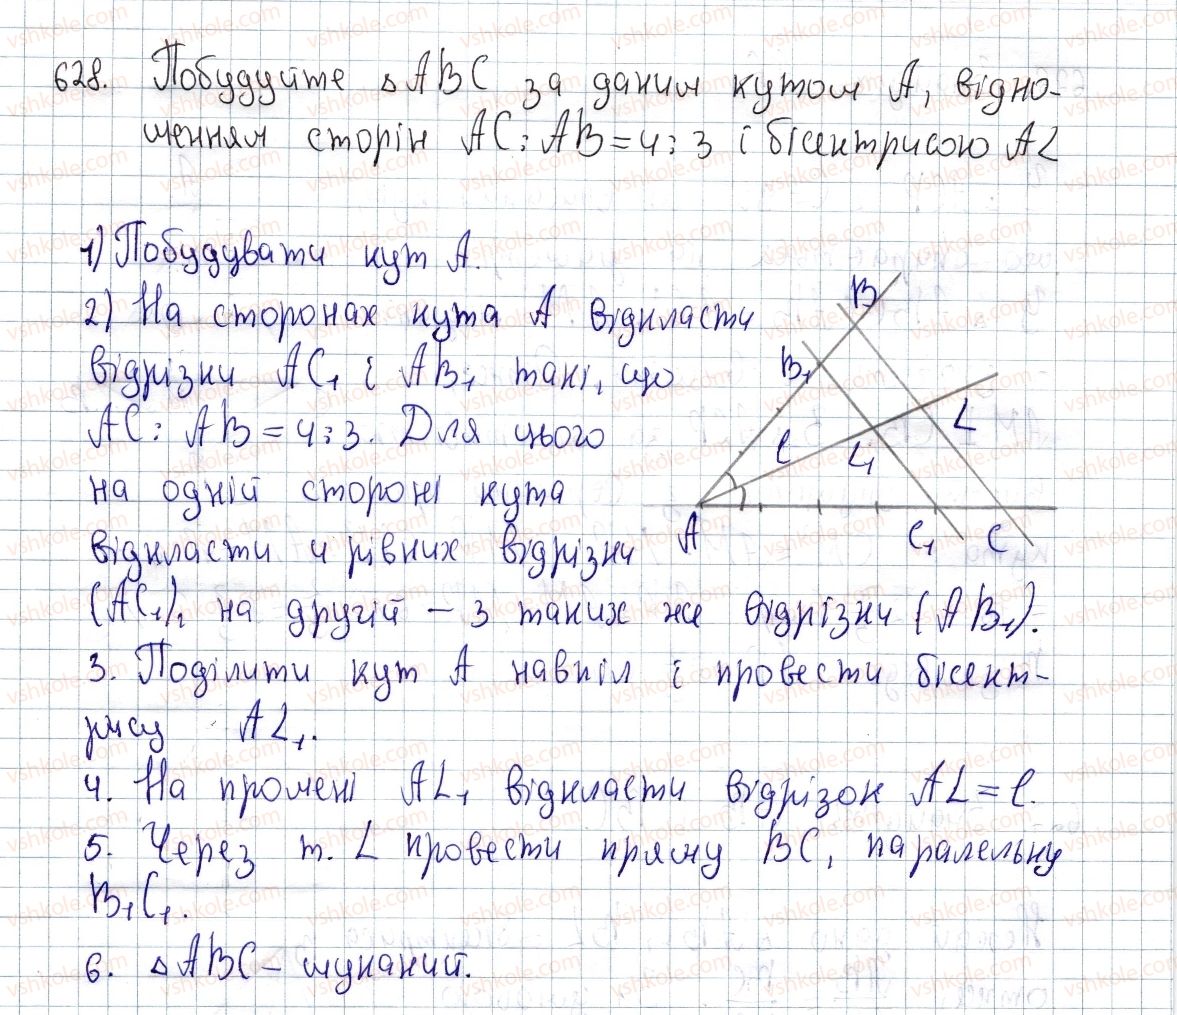 628. Побудуйте △ABC за даним кутом A, відно-
шенням сторін AC:AB=4:3 і бісектрисою AL
1) Побудувати кут A.
2) На сторонах кута A відкласти
відрізки AC₁ і AB₁ такі, що
AC:AB=4:3. Для цього
на одній стороні кута
відкласти 4 рівних відрізки
(AC₁), на другій – 3 таких же відрізки (AB₁).
3. Поділити кут A навпіл і провести бісект-
рису AL₁.
4. На промені AL₁ відкласти відрізок AL=l.
5. Через т. L провести пряму BC, паралельну
B₁C₁.
6. △ABC – шуканий.
B
B₁
L
l
L₁
A
C₁
C